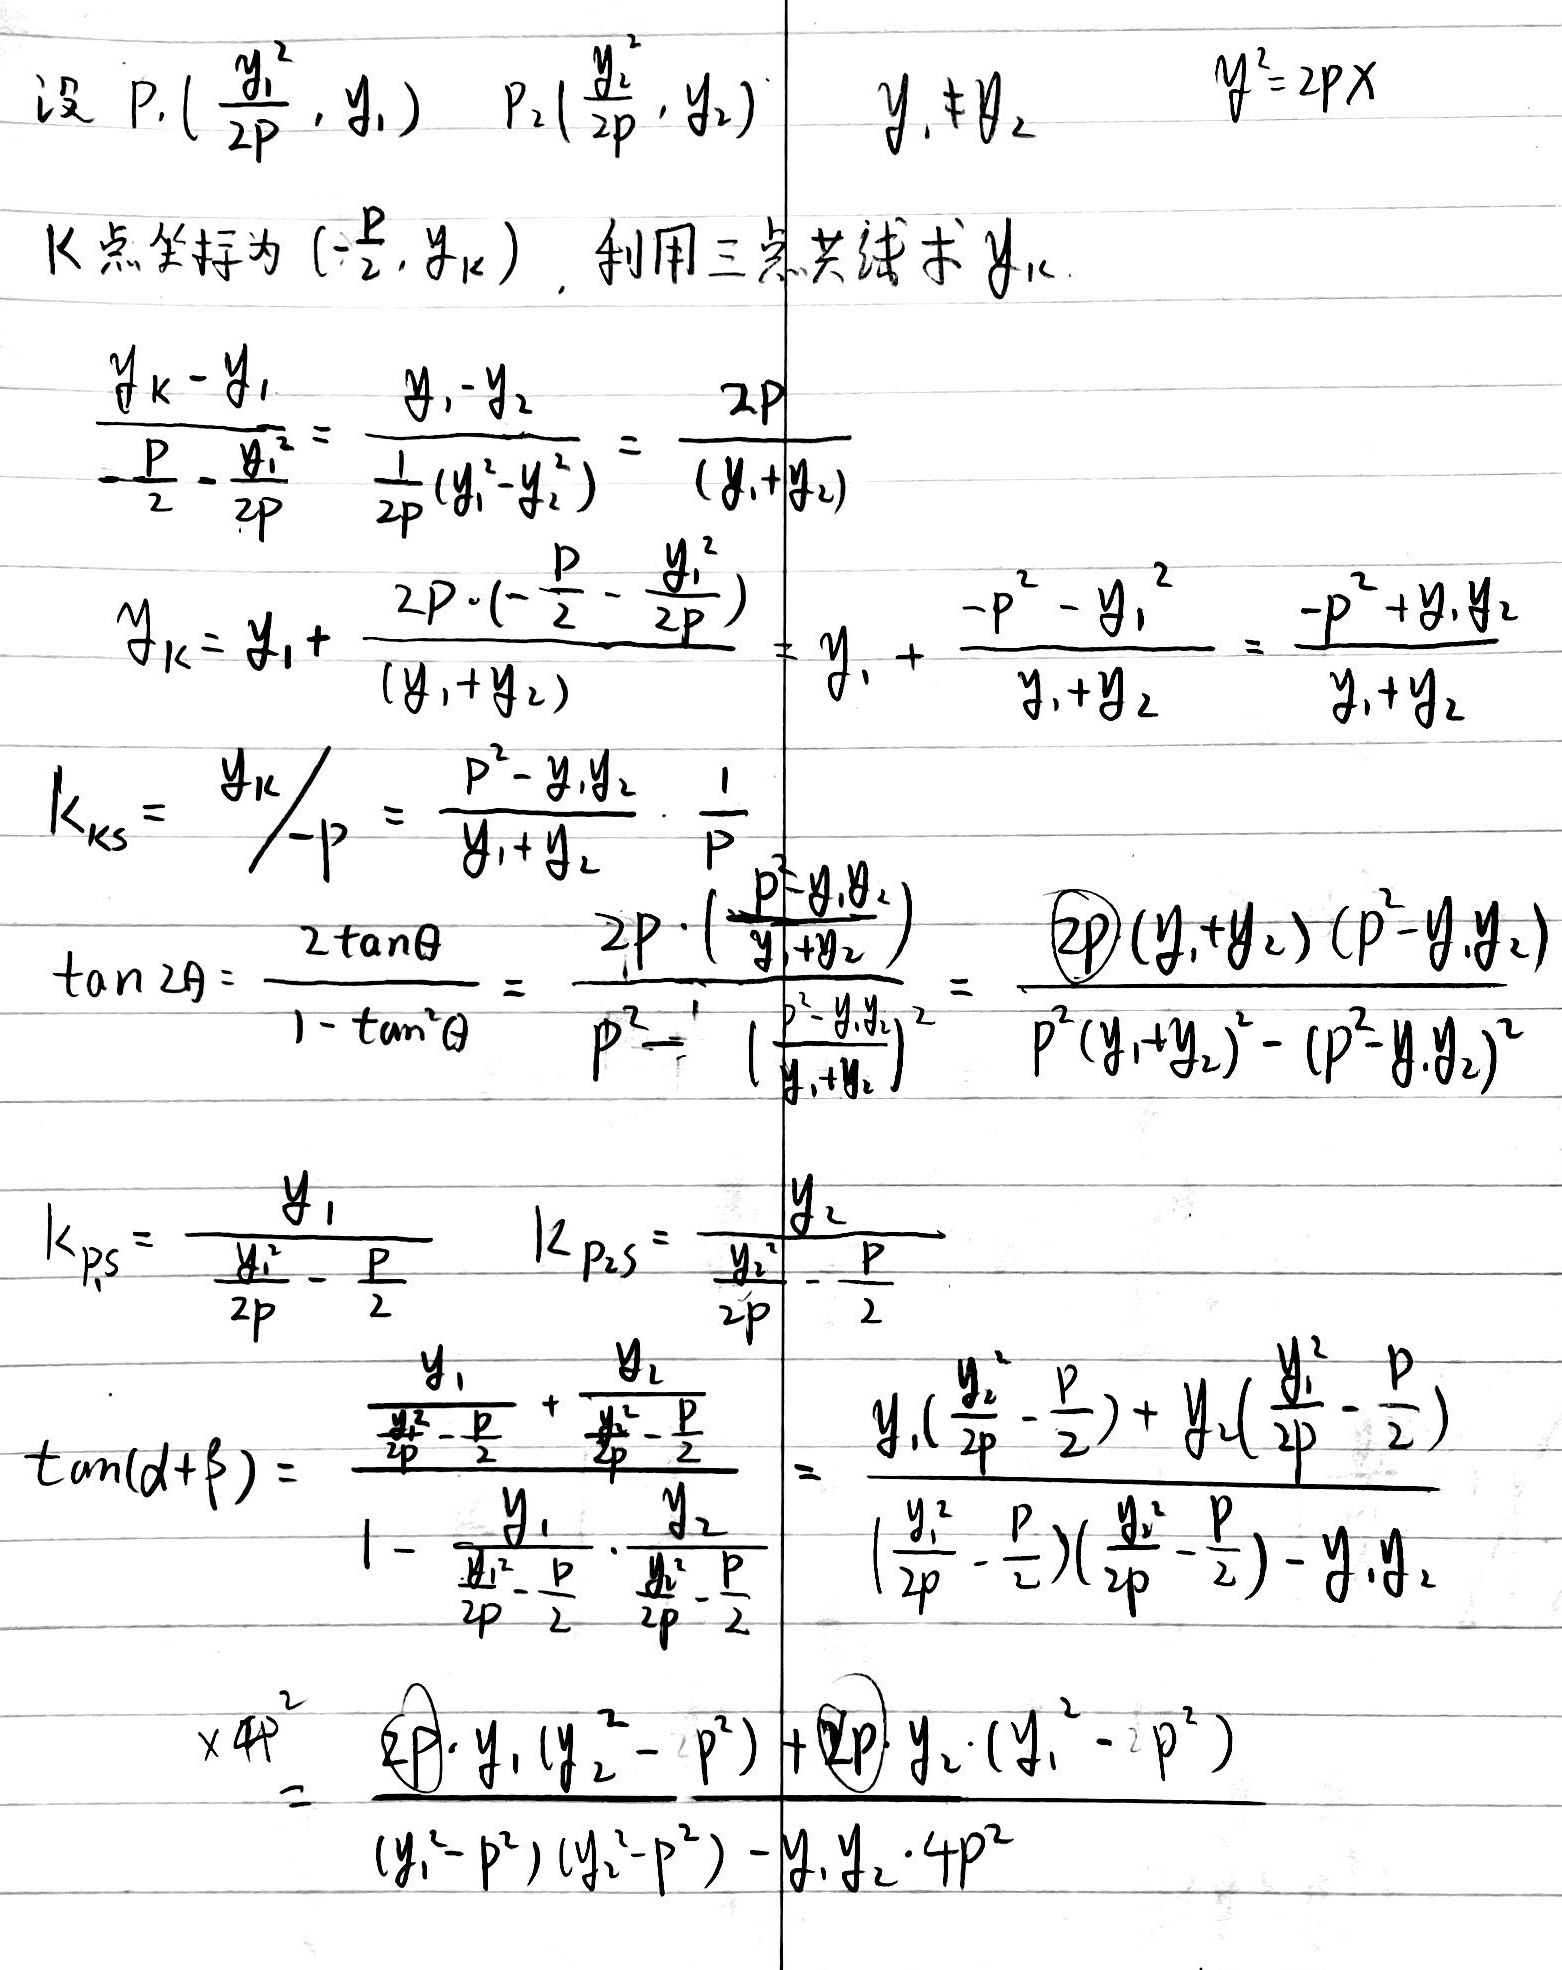 设 P₁(y₁²/2p, y₁) P₂(y₂²/2p, y₂) y₁≠y₂ y²=2px
K点坐标为(-p/2, y_K), 利用三点共线求 y_K.
(y_K-y₁)/(-p/2-y₁²/2p) = (y₁-y₂)/(1/2p(y₁²-y₂²)) = 2p/(y₁+y₂)
y_K = y₁+ 2p·(-p/2-y₁²/2p)/(y₁+y₂) = y₁+ (-p²-y₁²)/(y₁+y₂) = (-p²+y₁y₂)/(y₁+y₂)
k_KS = y_K/-p = (p²-y₁y₂)/(y₁+y₂) · 1/p
tan2θ = 2tanθ/(1-tan²θ) = 2p·((p²-y₁y₂)/(y₁+y₂))/(p²-((p²-y₁y₂)/(y₁+y₂))²) = 2p(y₁+y₂)(p²-y₁y₂)/(p²(y₁+y₂)²-(p²-y₁y₂)²)
k_P₁S = y₁/(y₁²/2p-p/2) k_P₂S = y₂/(y₂²/2p-p/2)
tan(α+β) = (y₁/(y₁²/2p-p/2)+y₂/(y₂²/2p-p/2))/(1-y₁/(y₁²/2p-p/2)·y₂/(y₂²/2p-p/2)) = (y₁(y₂²/2p-p/2)+y₂(y₁²/2p-p/2))/((y₁²/2p-p/2)(y₂²/2p-p/2)-y₁y₂)
×4p² = (2p·y₁(y₂²-p²)+2p·y₂·(y₁²-p²))/((y₁²-p²)(y₂²-p²)-y₁y₂·4p²)